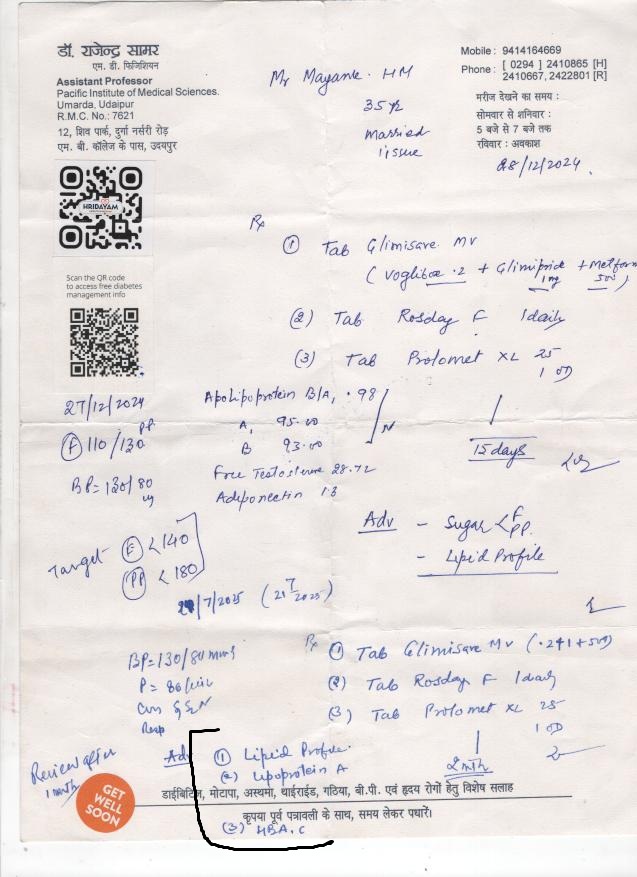 डॉ. राजेन्द्र सामर
एम. डी. फिजिशियन
Assistant Professor
Pacific Institute of Medical Sciences.
Umarda, Udaipur
R.M.C. No.: 7621
12, शिव पार्क, दुर्गा नर्सरी रोड़
एम. बी. कॉलेज के पास, उदयपुर
Mobile : 9414164669
Phone : [ 0294 ] 2410865 [H]
2410667, 2422801 [R]
मरीज देखने का समय :
सोमवार से शनिवार :
5 बजे से 7 बजे तक
रविवार : अवकाश
28/12/2024
Mr Mayank HM
35 yr
married
1 issue
HRIDAYAM
Scan the QR code
to access free diabetes
management info
Rx
(1) Tab Glimisave MV
(Voglibose .2 + Glimipride 1mg + Metform 500)
(2) Tab Rosday F 1 daily
(3) Tab Prolomet XL 25
1 OD
15 days
27/12/2024
(F) 110/130 PP.
BP = 130/80
Apolipoprotein B/A, .98
A, 95.00
B 93.00
N
Free Testosterone 28.72
Adiponectin 1.3
Adv - Sugar < F
PP.
- Lipid Profile
Target (F) < 140
(PP) < 180
/7/2025 (21/7/2025)
BP = 130/80 mmHg
P = 86/min
CVS S1S2 N
Resp
Rx (1) Tab Glimisave MV (.2+1+500)
(2) Tab Rosday F 1 daily
(3) Tab Prolomet XL 25
1 OD
2 mth
Adv (1) Lipid Profile
(2) Lipoprotein A
(3) HBA1C
Review after
1 month
GET
WELL
SOON
डाईबिटिज, मोटापा, अस्थमा, थाईराईड, गठिया, बी.पी. एवं हृदय रोगों हेतु विशेष सलाह
कृपया पूर्व पत्रावली के साथ, समय लेकर पधारें।